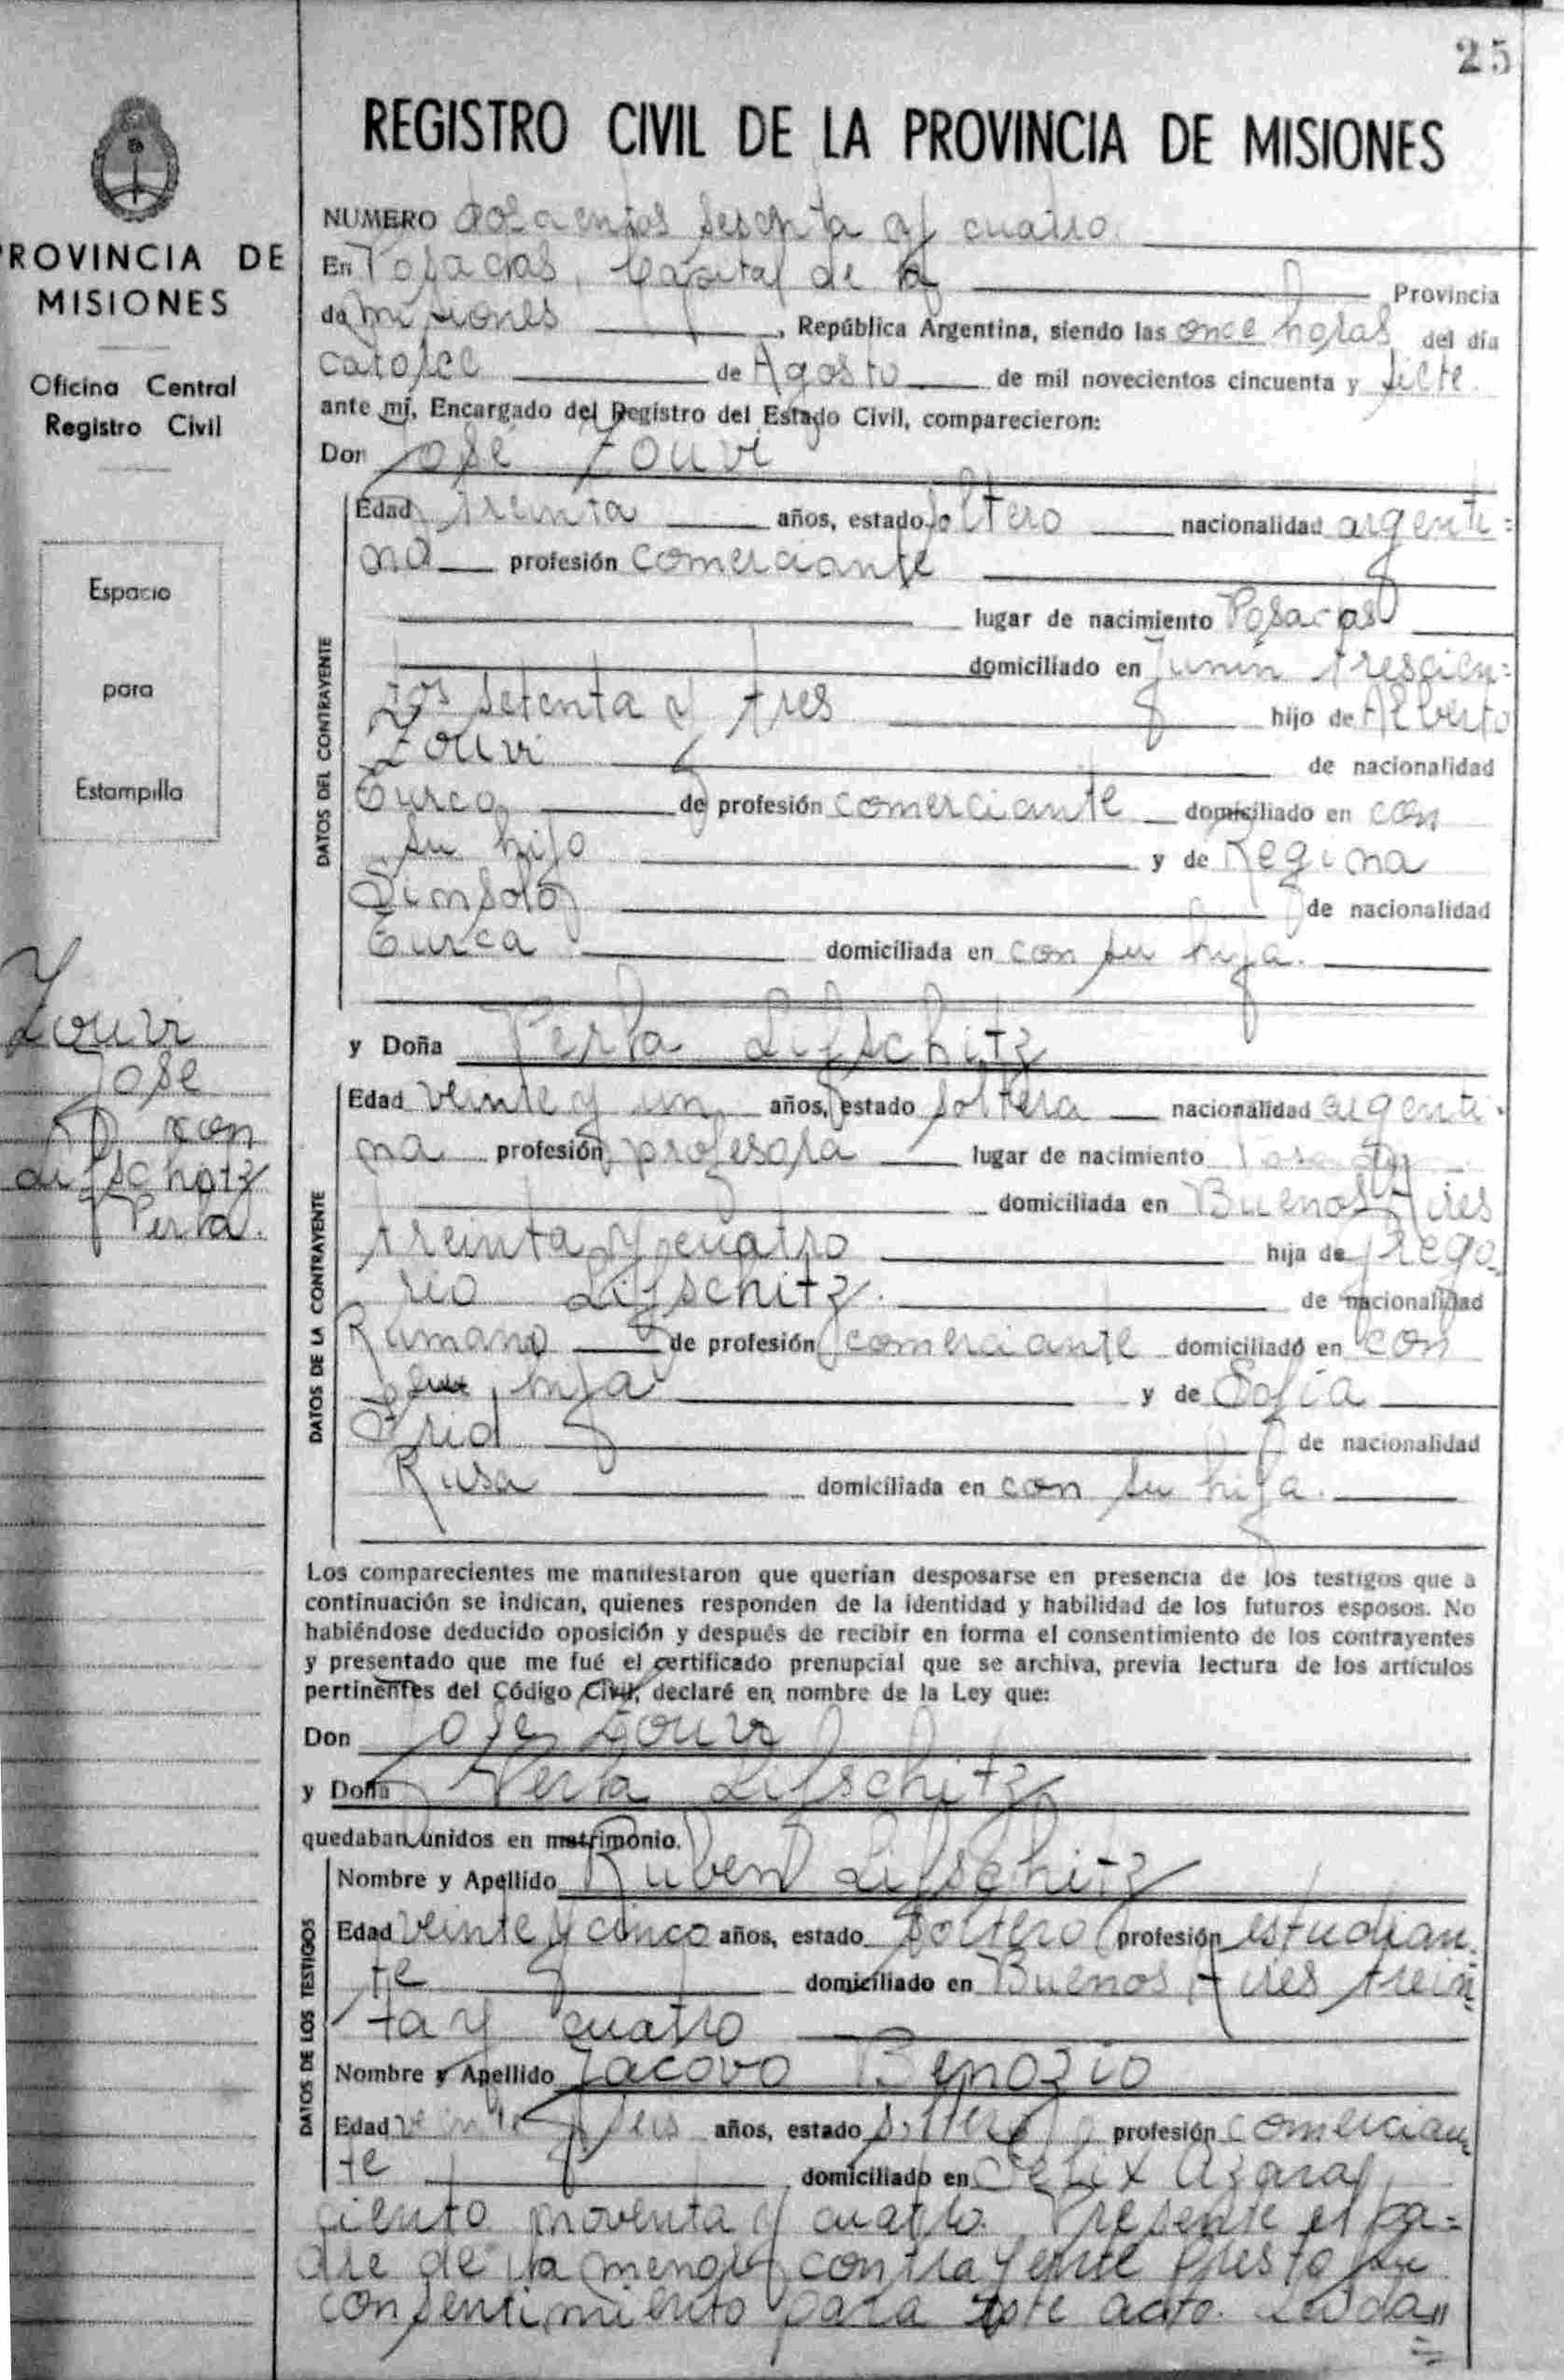 25
REGISTRO CIVIL DE LA PROVINCIA DE MISIONES
PROVINCIA DE
MISIONES
Oficina Central
Registro Civil
Espacio
para
Estampilla
Zouvi
José
con
Lifschitz
Perla.
NUMERO doscientos sesenta y cuatro.
En Posadas, Capital de la Provincia
de Misiones, República Argentina, siendo las once horas del día
catorce de Agosto de mil novecientos cincuenta y siete
ante mí, Encargado del Registro del Estado Civil, comparecieron:
Don José Zouvi
DATOS DEL CONTRAYENTE
Edad treinta años, estado soltero nacionalidad argenti=
na profesión comerciante
lugar de nacimiento Posadas
domiciliado en Junin trescien=
tos setenta y tres hijo de Alberto
Zouvi de nacionalidad
Turca de profesión comerciante domiciliado en con
su hijo y de Regina
de nacionalidad
Turca domiciliada en con su hijo.
y Doña Perla Lifschitz
DATOS DE LA CONTRAYENTE
Edad veinte y un años, estado soltera nacionalidad argenti-
na profesión profesora lugar de nacimiento
domiciliada en Buenos Aires
treinta y cuatro hija de Grego-
rio Lifschitz. de nacionalidad
Rumano de profesión comerciante domiciliado en con
su hija y de Sofía
de nacionalidad
Rusa domiciliada en con su hija.
Los comparecientes me manifestaron que querían desposarse en presencia de los testigos que a
continuación se indican, quienes responden de la identidad y habilidad de los futuros esposos. No
habiéndose deducido oposición y después de recibir en forma el consentimiento de los contrayentes
y presentado que me fué el certificado prenupcial que se archiva, previa lectura de los artículos
pertinentes del Código Civil, declaré en nombre de la Ley que:
Don José Zouvi
y Doña Perla Lifschitz
quedaban unidos en matrimonio.
DATOS DE LOS TESTIGOS
Nombre y Apellido Ruben Lifschitz
Edad veinte y cinco años, estado soltero profesión estudian-
te domiciliado en Buenos Aires trein-
ta y cuatro
Nombre y Apellido Jacovo Benozio
Edad veinte y seis años, estado soltero profesión comercian
te domiciliado en Felix Azara
ciento noventa y cuatro. Presente el pa=
dre de la menor contrayente presta su
consentimiento para este acto. Leida